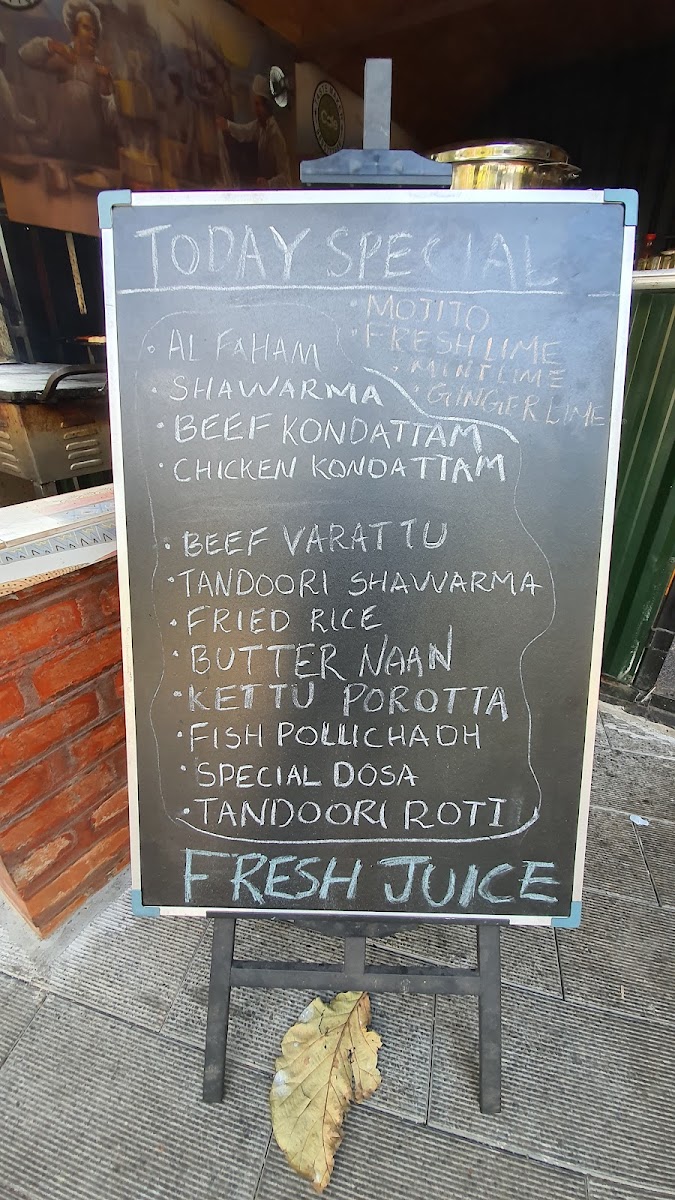 TODAY SPECIAL
• MOJITO
• FRESH LIME
• MINT LIME
• GINGER LIME
• AL FAHAM
• SHAWARMA
• BEEF KONDATTAM
• CHICKEN KONDATTAM
• BEEF VARATTU
• TANDOORI SHAWARMA
• FRIED RICE
• BUTTER NAAN
• KETTU POROTTA
• FISH POLLICHADH
• SPECIAL DOSA
• TANDOORI ROTI
FRESH JUICE